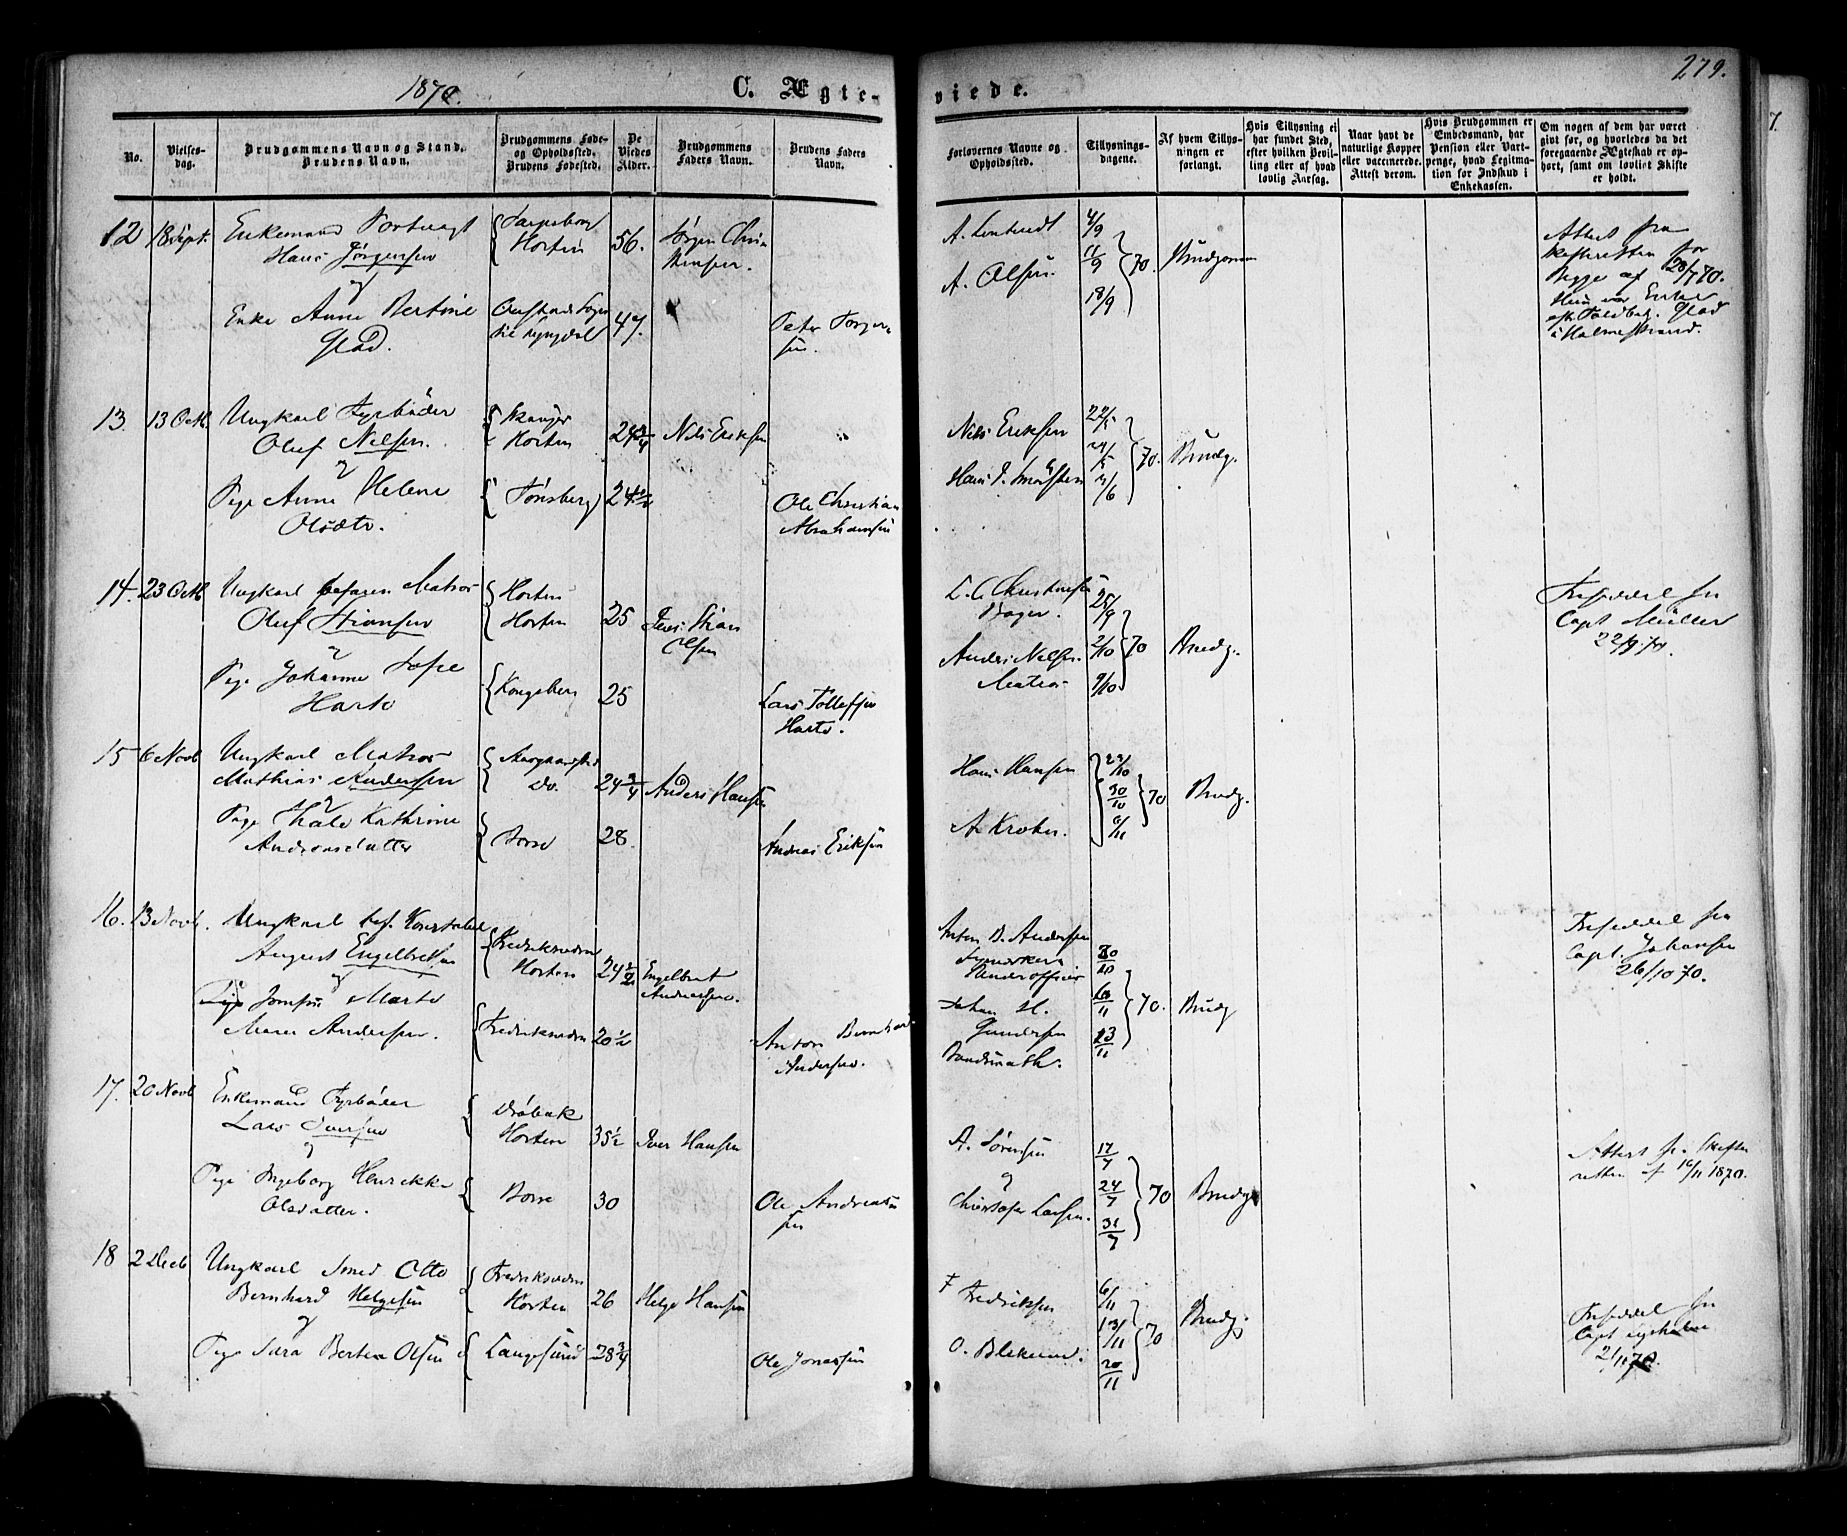 1870.
C. Ægte-
viede.
279.
No.
Vielses-
dag.
Brudgommens Navn og Stand.
Brudens Navn.
Brudgommens Føde-
og Opholdssted.
Brudens Fødested.
De
Viedes
Alder.
Brudgommens
Faders Navn.
Brudens Faders
Navn.
Forlovernes Navne og
Opholdssted.
Tillysnings-
dagene.
Af hvem Tillys-
ningen er
forlangt.
Hvis Tillysning ei
har fundet Sted,
efter hvilken Bevil-
ling eller af hvad
lovlig Aarsag.
Naar havt de
naturlige Kopper
eller vaccinerede.
Attest derom.
Hvis Brudgommen er
Embedsmand, har
Pension eller Vart-
penge, hvad Legitima-
tion for Indskud i
Enkekassen.
Om nogen af dem har været
gift før, og hvorledes da det
foregaaende Ægteskab er op-
hørt, samt om lovligt Skifte
er holdt.
12 18 Sept. Enkemand
Hans Jørgensen
Horten
56.
Jørgen Chri
stensen.
Enke Anne Bertine
Glad.
47.
Peter Torger
sen.
A.
A. Olsen.
4/9
11/9
18/9
70.
Brudgommen
Attest fra
Skifteretten for
Begge af 28/7 70.
Hun var Enke
eft. Toldbetj. Glad
i Holmestrand.
13. 13 Octb. Ungkarl Fyrbøder
Oluf Nilsen.
Horten
24 3/4
Nils Eriksen
"
Pige Anne Helene
Tønsberg
24 1/2
Ole Christian
Abrahamsen
Nils Eriksen
Hans J.
22/5
29/5
70.
Brudg.
14. 23 Octb. Ungkarl befaren Matros
Oluf Stiansen
Horten
Horten
25
Jens Stian
Olsen
Pige Johanne Sofie
Harto
Kongsberg
25
Lars Tollefsen
Harto.
L. C. Christensen
Bager.
Anders Nilsen.
Matros
25/9
2/10
9/10
70
Brudg.
Frisedel fra
Capt Müller
22/9 70.
15 6 Novb Ungkarl Matros
Mathias Andersen
Do.
24 3/4
Anders Hansen
Pige Thale Kathrine
Andreasdatter
Borre
28
Andreas Eriksen
Hans Hansen
A Krohn.
30/10
6/11
70
Brudg.
16. 13 Novb. Ungkarl bef. Konstabel
August Engelbretsen
Fredriksværn
Horten
24 1/2
Engelbret
Andreassen.
Pige Marte
Maren Andersen.
Fredriksværn
20 1/2
Anton Bernhard
Andersen.
Anton B. Andersen
Underofficer
Johan H.
Gundersen
Baadsmath.
30/10
6/11
13/11
70.
Brudg
Frisedel fra
Capt. Johansen
26/10 70.
17. 20 Novb Enkemand Fyrbøder
Lars Iversen
Drøbak
Horten
35 1/2
Iver Hansen
Pige Ingeborg Henrikke
Olsdatter.
Borre
30
Ole Andreas
sen
A. Sørensen
Christofer Larsen.
17/7
24/7
31/7
70
Brudg
Attest fr. Skifte
retten af 16/11 1870.
18 2 Decb Ungkarl Smed Otto
Bernhard Helgesen
Fredriksværn
Horten
26
Helge Hansen
Pige Sara Bertea Olsen
Langesund
28 3/4
Ole Jonassen
F Fredriksen
O.
6/11
13/11
20/11
70
Brudg.
Frisedel fra
Capt
2/11 70.